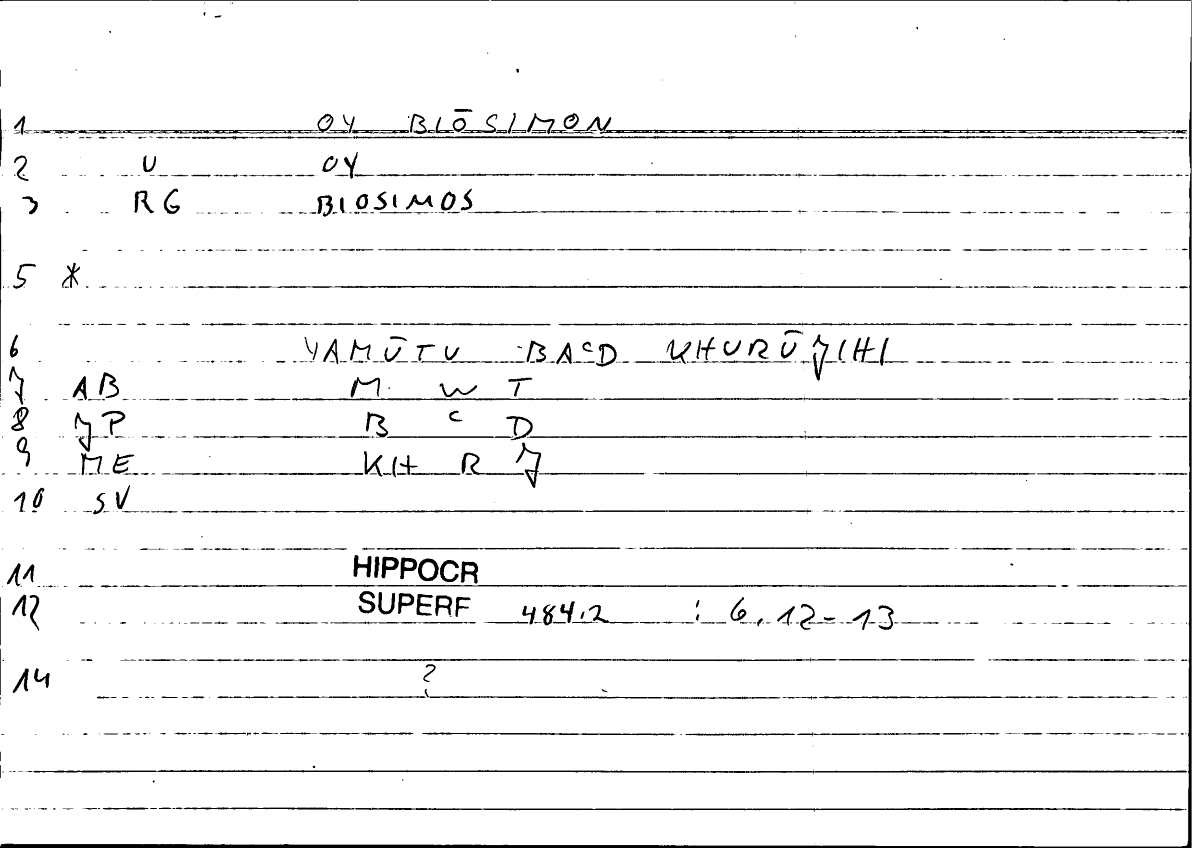 1 OY BIŌSIMON
2 U OY
3 RG BIOSIMOS
5 *
6 YAMŪTU BAᶜD KHURŪJIHI
7 AB M W T
8 JP B ᶜ D
9 ME KH R J
10 SV
11 HIPPOCR
12 SUPERF 484.2 : 6.12-13
14 ?